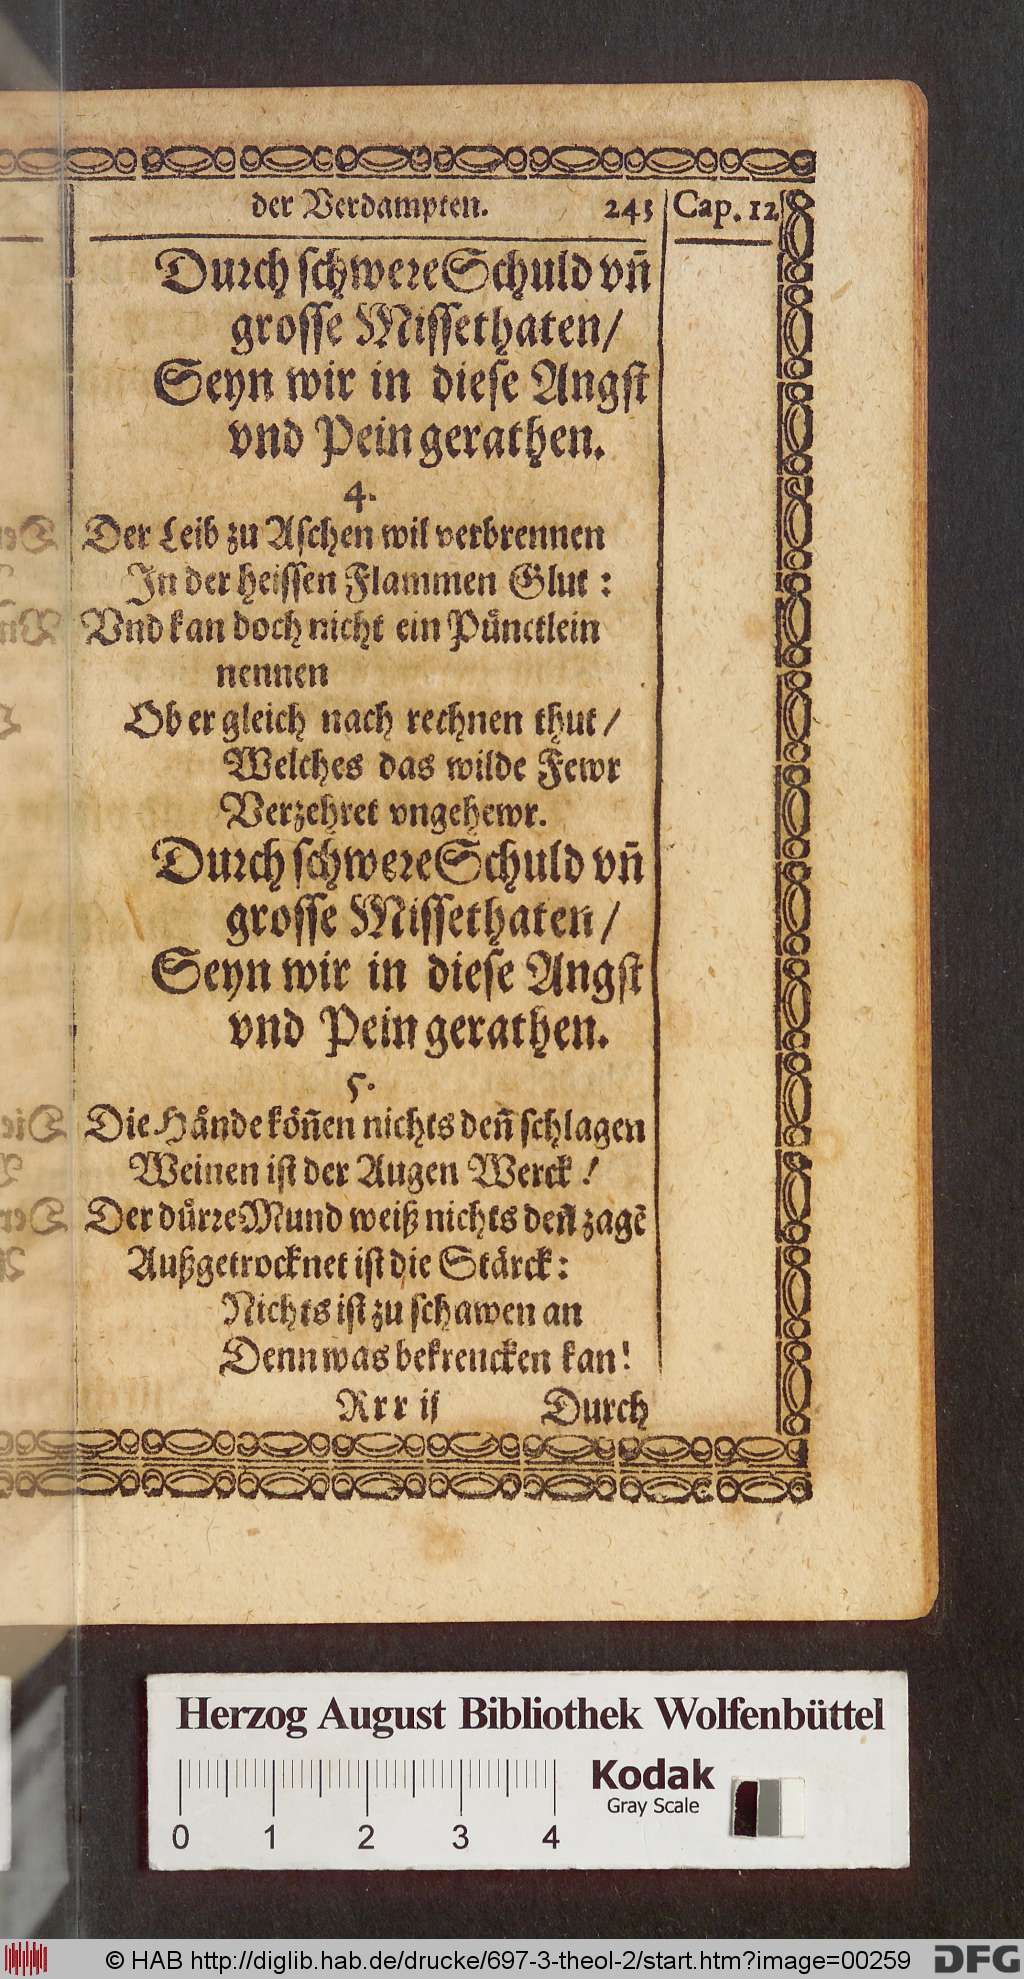 der Verdampten. 245 Cap. 12
Durch schwere Schuld vn̄
grosse Missethaten/
Seyn wir in diese Angst
vnd Pein gerathen.
4.
Der Leib zu Aschen wil verbrennen
In der heissen Flammen Glut :
Vnd kan doch nicht ein Pünctlein
nennen
Ob er gleich nach rechnen thut /
Welches das wilde Fewr
Verzehret vngehewr.
Durch schwere Schuld vn̄
grosse Missethaten /
Seyn wir in diese Angst
vnd Pein gerathen.
5.
Die Hände kön̄en nichts den̄ schlagen
Weinen ist der Augen Werck !
Der dürre Mund weiß nichts den̄ zagē
Außgetrocknet ist die Stärck :
Nichts ist zu schawen an
Denn was bekrencken kan!
Rrr ij Durch
Herzog August Bibliothek Wolfenbüttel
Kodak
Gray Scale
0 1 2 3 4
© HAB http://diglib.hab.de/drucke/697-3-theol-2/start.htm?image=00259 DFG